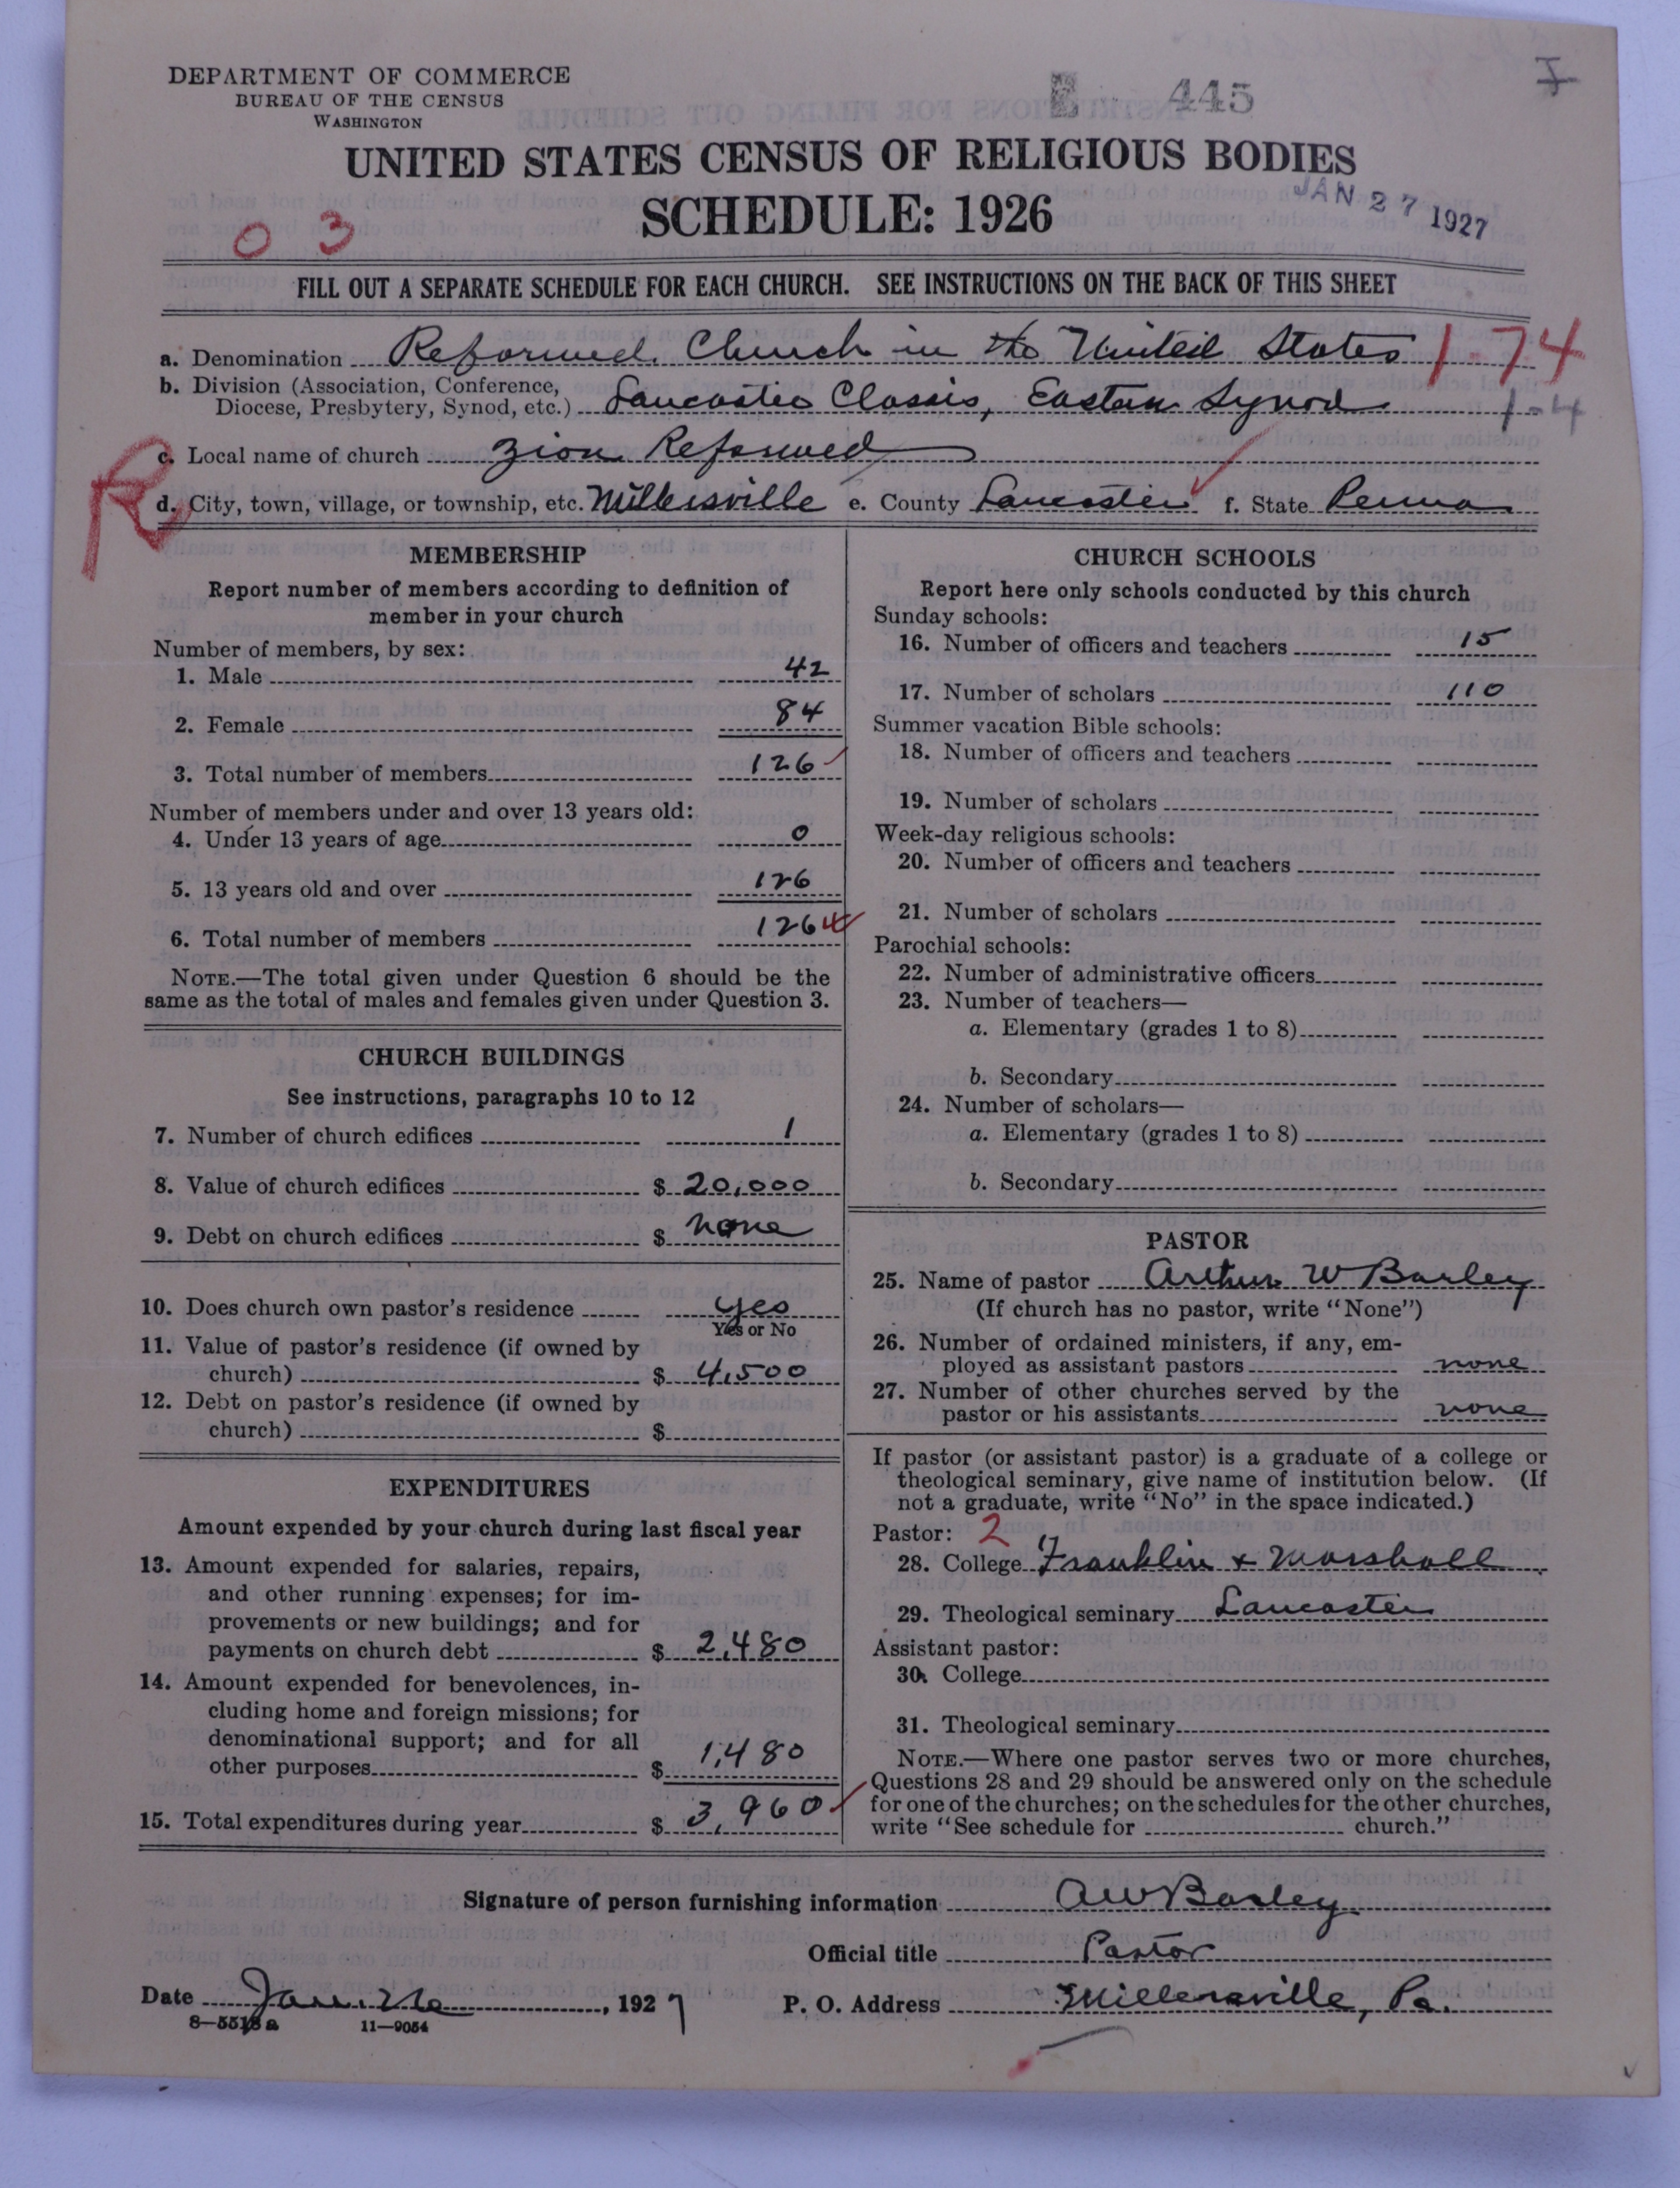 DEPARTMENT OF COMMERCE
BUREAU OF THE CENSUS
WASHINGTON
445
UNITED STATES CENSUS OF RELIGIOUS BODIES
SCHEDULE: 1926
JAN 27 1927
0 3
FILL OUT A SEPARATE SCHEDULE FOR EACH CHURCH. SEE INSTRUCTIONS ON THE BACK OF THIS SHEET
a. Denomination Reformed Church in the United States 1-74
b. Division (Association, Conference,
Diocese, Presbytery, Synod, etc.) Lancaster Classis, Eastern Synod 1-4
R
c. Local name of church Zion Reformed
d. City, town, village, or township, etc. Millersville e. County Lancaster f. State Penna
MEMBERSHIP
Report number of members according to definition of
member in your church
Number of members, by sex:
1. Male 42
2. Female 84
3. Total number of members 126
Number of members under and over 13 years old:
4. Under 13 years of age 0
5. 13 years old and over 126
6. Total number of members 126
NOTE.—The total given under Question 6 should be the
same as the total of males and females given under Question 3.
CHURCH BUILDINGS
See instructions, paragraphs 10 to 12
7. Number of church edifices 1
8. Value of church edifices $ 20,000
9. Debt on church edifices $ none
10. Does church own pastor's residence yes
Yes or No
11. Value of pastor's residence (if owned by
church) $ 4,500
12. Debt on pastor's residence (if owned by
church) $
EXPENDITURES
Amount expended by your church during last fiscal year
13. Amount expended for salaries, repairs,
and other running expenses; for im-
provements or new buildings; and for
payments on church debt $ 2,480
14. Amount expended for benevolences, in-
cluding home and foreign missions; for
denominational support; and for all
other purposes $ 1,480
15. Total expenditures during year $ 3,960
CHURCH SCHOOLS
Report here only schools conducted by this church
Sunday schools:
16. Number of officers and teachers 15
17. Number of scholars 110
Summer vacation Bible schools:
18. Number of officers and teachers
19. Number of scholars
Week-day religious schools:
20. Number of officers and teachers
21. Number of scholars
Parochial schools:
22. Number of administrative officers
23. Number of teachers—
a. Elementary (grades 1 to 8)
b. Secondary
24. Number of scholars—
a. Elementary (grades 1 to 8)
b. Secondary
PASTOR
25. Name of pastor Arthur W Barley
(If church has no pastor, write "None")
26. Number of ordained ministers, if any, em-
ployed as assistant pastors none
27. Number of other churches served by the
pastor or his assistants none
If pastor (or assistant pastor) is a graduate of a college or
theological seminary, give name of institution below. (If
not a graduate, write "No" in the space indicated.)
Pastor: 2
28. College Franklin & Marshall
29. Theological seminary Lancaster
Assistant pastor:
30. College
31. Theological seminary
NOTE.—Where one pastor serves two or more churches,
Questions 28 and 29 should be answered only on the schedule
for one of the churches; on the schedules for the other churches,
write "See schedule for church."
Signature of person furnishing information AW Barley
Official title Pastor
Date Jan. 26, 1927 P. O. Address Millersville, Pa.
8—5513 a 11—9054